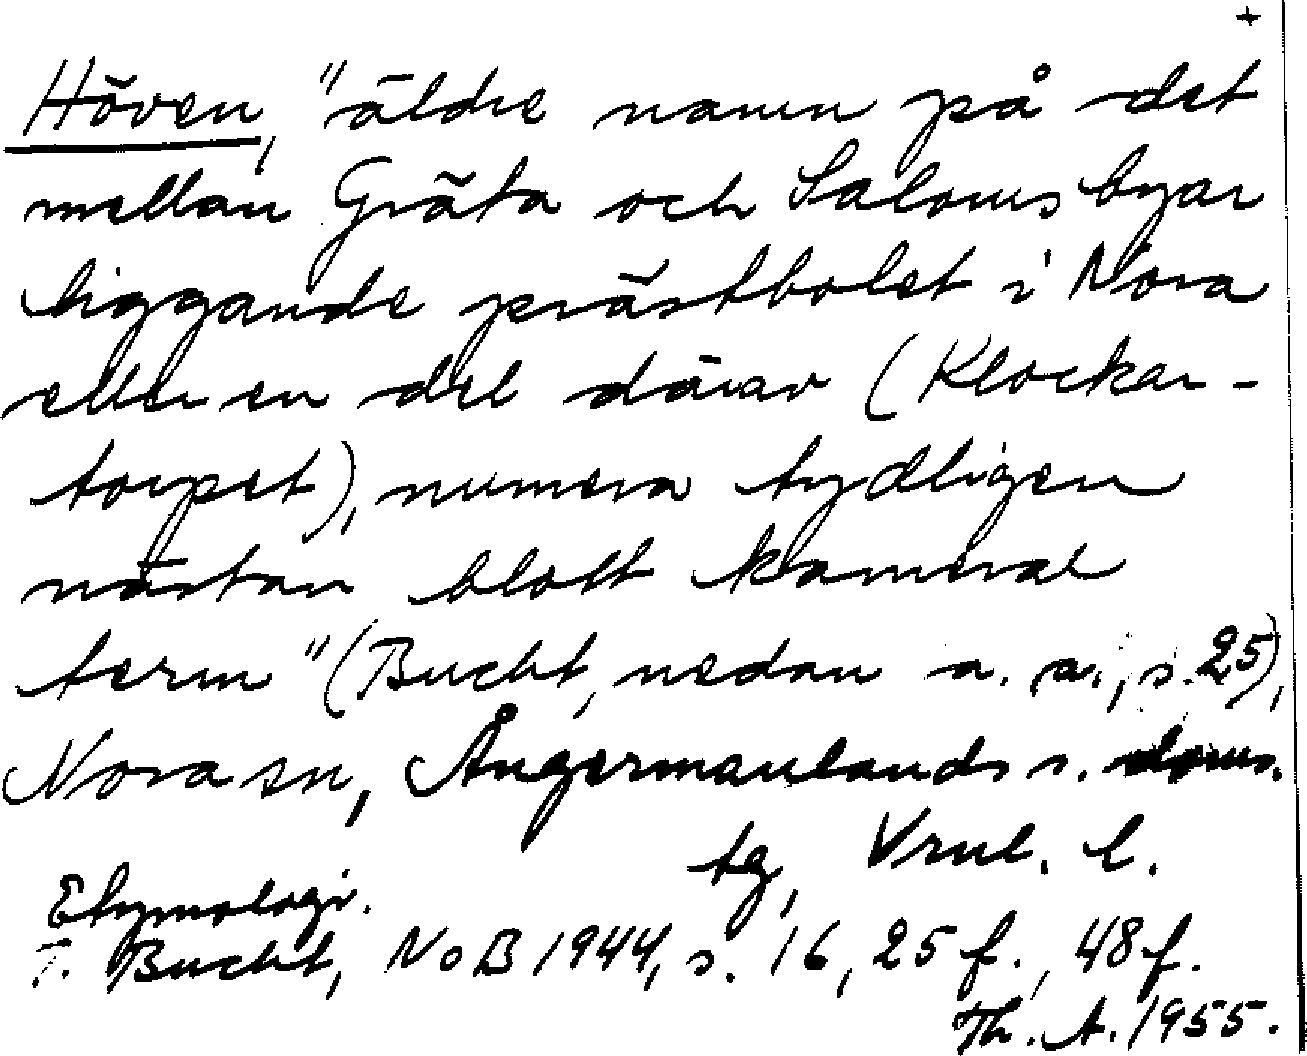 +
Höven, "äldre namn på det
mellan Gräta och Saloms byar
liggande prästbolet i Nora
eller en del därav (Klockar-
torpet), numera tydligen
nästan blott kameral
term" (Bucht, nedan a. a., s. 25),
Nora sn, Ångermanlands s. doms.
tg, Vrnl. l.
Etymologi.
T. Bucht, NoB 1944, s. 16, 25 f., 48 f.
Th. A. 1955.